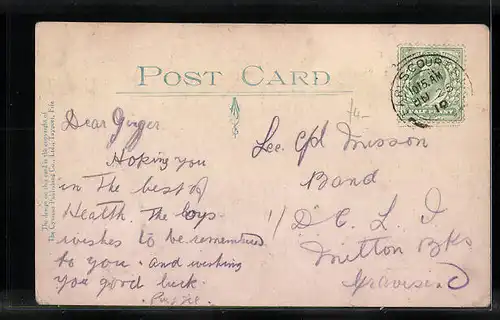 POST CARD
The design on this card is the copyright of
The Cynicus Publishing Co., Ltd., Tayport, Fife
EARLS COURT
10.15 AM
10
HALFPENNY
7/-
Dear Ginger
Hoping you
in the best of
Health. The boys
wishes to be remembered
to you. and wishing
you good luck.
Lce. Cpl Musson
Band
1/ D C L I
Milton Bks
Gravesend